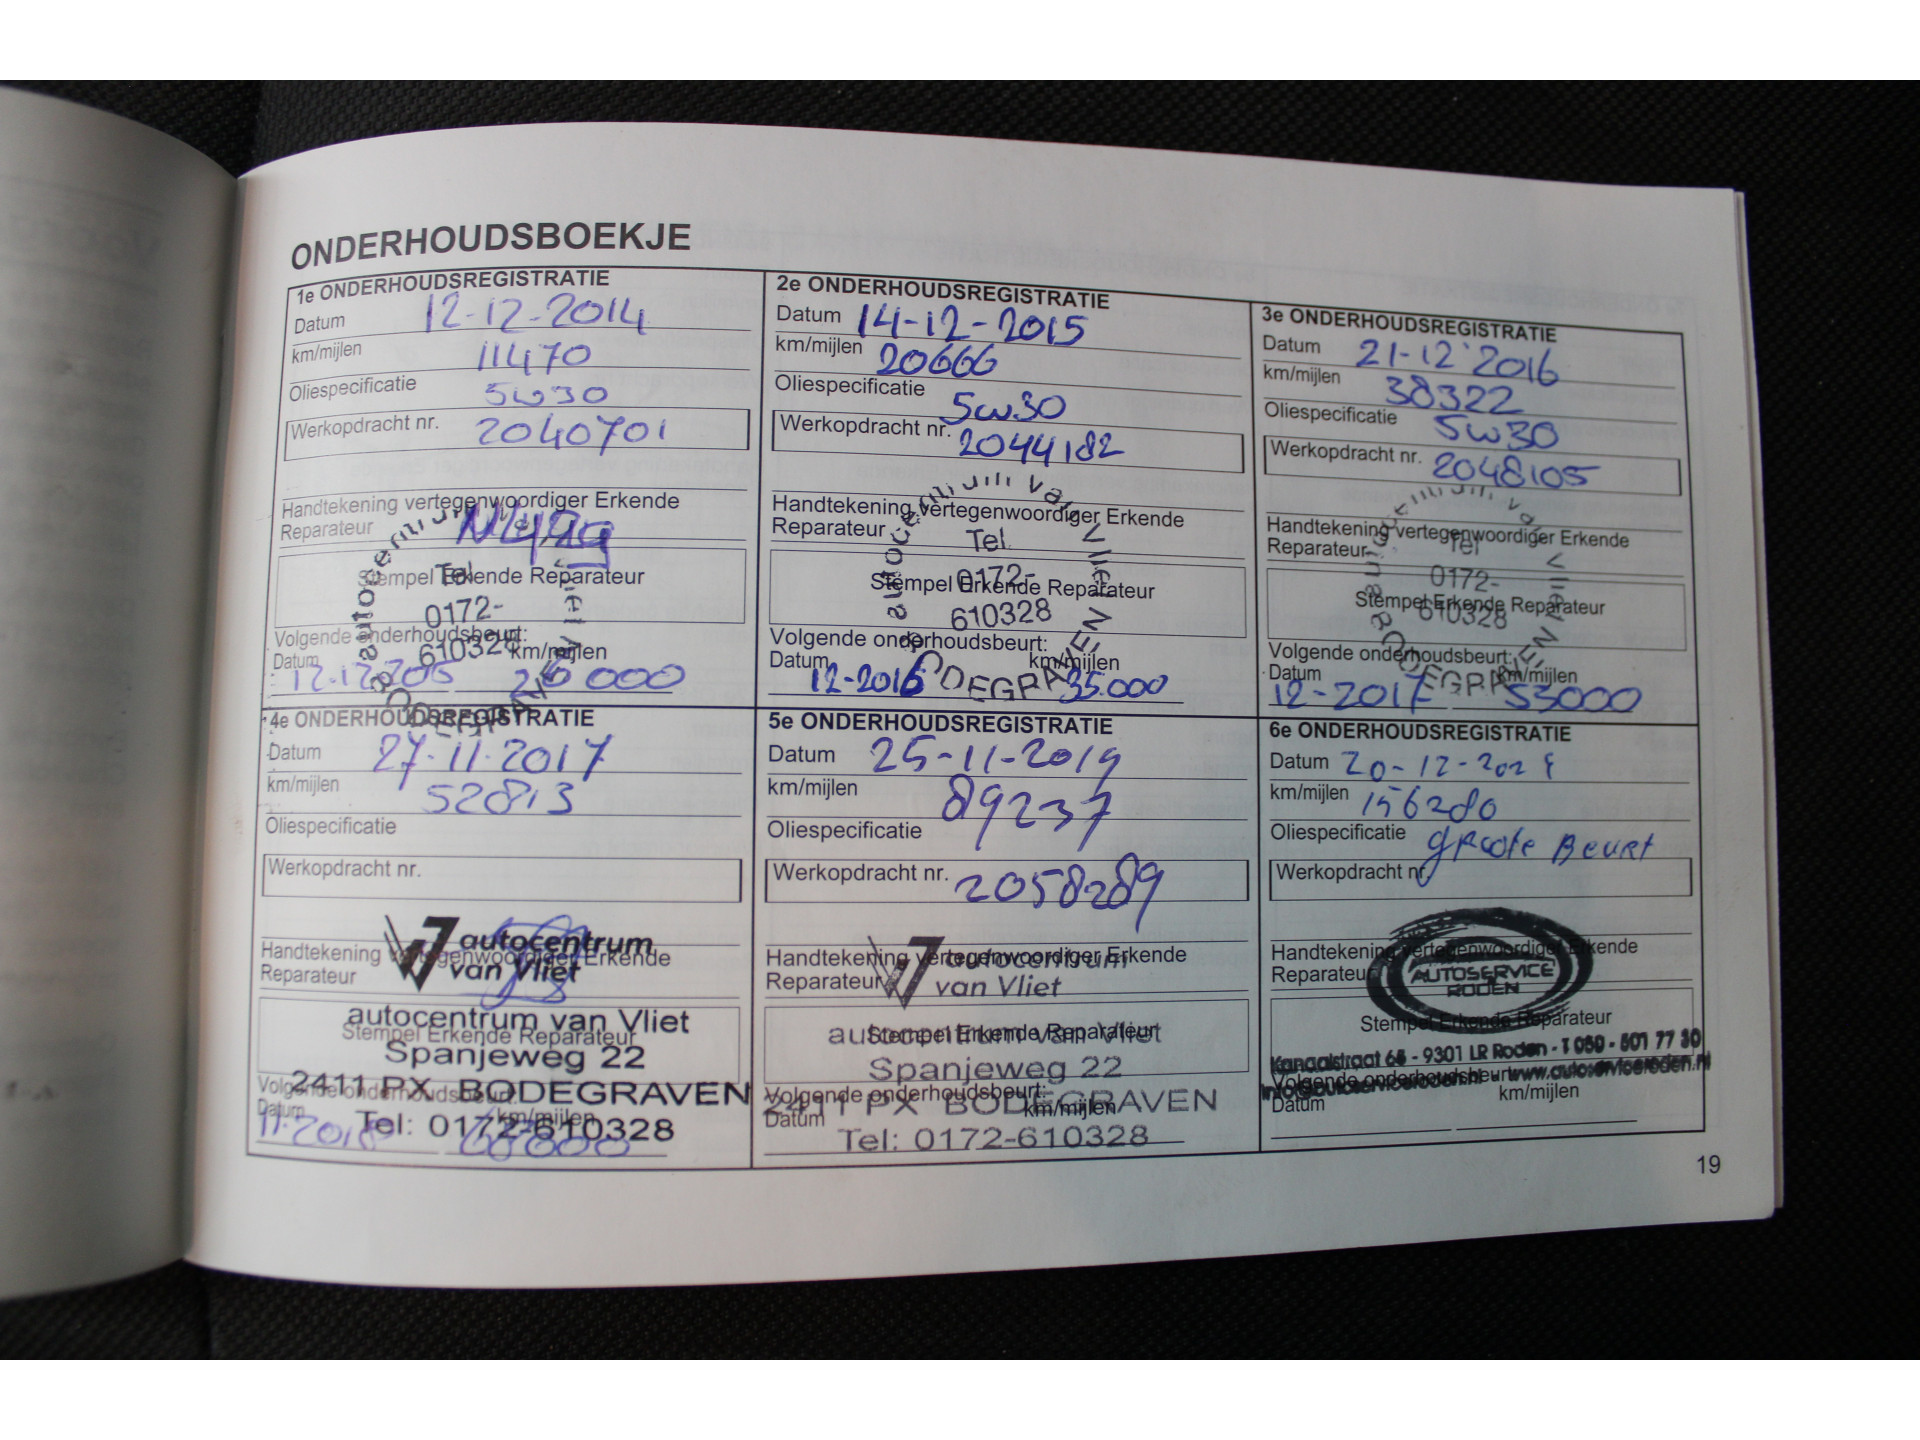 ONDERHOUDSBOEKJE
1e ONDERHOUDSREGISTRATIE
Datum 12-12-2014
km/mijlen 11470
Oliespecificatie 5w30
Werkopdracht nr. 2040701
Handtekening vertegenwoordiger Erkende
Reparateur
Stempel Erkende Reparateur
autocentrum van Vliet BODEGRAVEN
Tel
0172-
610328
Volgende onderhoudsbeurt:
Datum km/mijlen
12-12-2015
2e ONDERHOUDSREGISTRATIE
Datum 14-12-2015
km/mijlen 20666
Oliespecificatie 5w30
Werkopdracht nr. 2044182
Handtekening vertegenwoordiger Erkende
Reparateur
Stempel Erkende Reparateur
autocentrum van Vliet BODEGRAVEN
Tel.
0172-
610328
Volgende onderhoudsbeurt:
Datum km/mijlen
12-2016 35.000
3e ONDERHOUDSREGISTRATIE
Datum 21-12-2016
km/mijlen 38322
Oliespecificatie 5w30
Werkopdracht nr. 2048105
Handtekening vertegenwoordiger Erkende
Reparateur
Stempel Erkende Reparateur
autocentrum van Vliet BODEGRAVEN
Tel
0172-
610328
Volgende onderhoudsbeurt:
Datum km/mijlen
12-2017 53000
4e ONDERHOUDSREGISTRATIE
Datum 27-11-2017
km/mijlen 52813
Oliespecificatie
Werkopdracht nr.
Handtekening vertegenwoordiger Erkende
Reparateur
autocentrum
van Vliet
Stempel Erkende Reparateur
autocentrum van Vliet
Spanjeweg 22
2411 PX BODEGRAVEN
Tel: 0172-610328
Volgende onderhoudsbeurt:
Datum km/mijlen
11-2018
5e ONDERHOUDSREGISTRATIE
Datum 25-11-2019
km/mijlen 89237
Oliespecificatie
Werkopdracht nr. 2058289
Handtekening vertegenwoordiger Erkende
Reparateur
autocentrum
van Vliet
Stempel Erkende Reparateur
autocentrum van Vliet
Spanjeweg 22
2411 PX BODEGRAVEN
Tel: 0172-610328
Volgende onderhoudsbeurt:
Datum km/mijlen
6e ONDERHOUDSREGISTRATIE
Datum
km/mijlen 156280
Oliespecificatie grote Beurt
Werkopdracht nr.
Handtekening vertegenwoordiger Erkende
Reparateur
AUTOSERVICE
RODEN
Stempel Erkende Reparateur
Kanaalstraat - 9301 LR Roden - T 050 - 501 77 30
info@autoserviceroden.nl - www.autoserviceroden.nl
Volgende onderhoudsbeurt:
Datum km/mijlen
19